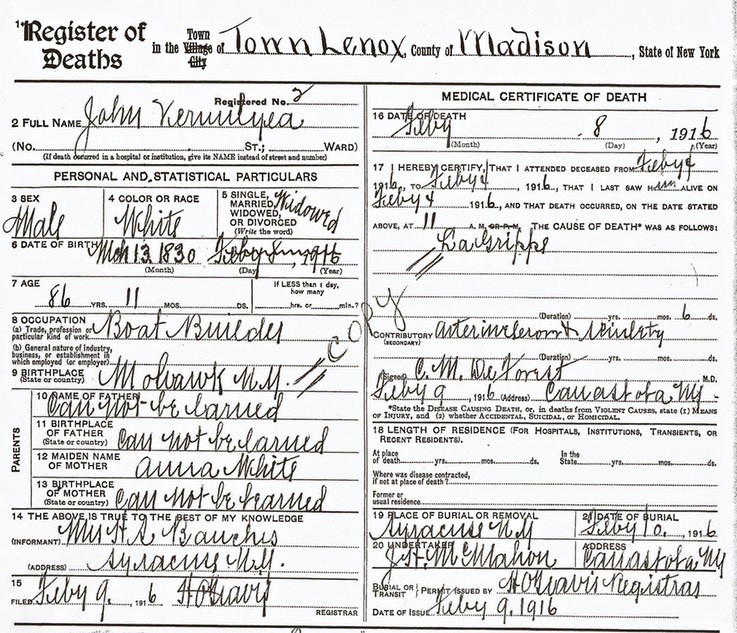 1 Register of Deaths in the Town Village City of Town Lenox, County of Madison, State of New York
Registered No. 2
2 FULL NAME John Vermilyea
(No. ST.; WARD)
(If death occurred in a hospital or institution, give its NAME instead of street and number)
PERSONAL AND STATISTICAL PARTICULARS
3 SEX Male
4 COLOR OR RACE White
5 SINGLE, MARRIED, WIDOWED, OR DIVORCED (Write the word) Widowed
6 DATE OF BIRTH Mch 13 1830
(Month) (Day) (Year)
7 AGE 86 YRS. 11 MOS. DS.
If LESS than 1 day, how many hrs. or min.?
8 OCCUPATION
(a) Trade, profession or particular kind of work Boat Builder
(b) General nature of industry, business, or establishment in which employed (or employer)
9 BIRTHPLACE (State or country) Mohawk N.Y.
PARENTS
10 NAME OF FATHER Can not be larned
11 BIRTHPLACE OF FATHER (State or country) Can not be larned
12 MAIDEN NAME OF MOTHER Anna White
13 BIRTHPLACE OF MOTHER (State or country) Can not be learned
14 THE ABOVE IS TRUE TO THE BEST OF MY KNOWLEDGE
(INFORMANT) Mrs H
(ADDRESS) Syracuse N.Y.
15 FILED Feby 9, 1916
REGISTRAR
MEDICAL CERTIFICATE OF DEATH
16 DATE OF DEATH Feby 8, 1916
(Month) (Day) (Year)
17 I HEREBY CERTIFY, THAT I ATTENDED DECEASED FROM Feby 4
1916, TO Feby 8, 1916, THAT I LAST SAW Him ALIVE ON
Feby 8 1916, AND THAT DEATH OCCURRED, ON THE DATE STATED
ABOVE, AT 11 A. M. OR P. M. THE CAUSE OF DEATH* WAS AS FOLLOWS:
La Grippe
// COPY //
(Duration) yrs. mos. 6 ds.
CONTRIBUTORY (SECONDARY)
(Duration) yrs. mos. ds.
(Signed) C. M. De Forest M.D.
Feby 9, 1916 (Address) Canastota NY
*State the DISEASE CAUSING DEATH, or, in deaths from VIOLENT CAUSES, state (1) MEANS OF INJURY, and (2) whether ACCIDENTAL, SUICIDAL, or HOMICIDAL.
18 LENGTH OF RESIDENCE (FOR HOSPITALS, INSTITUTIONS, TRANSIENTS, OR RECENT RESIDENTS).
At place of death yrs. mos. ds. In the State yrs. mos. ds.
Where was disease contracted, if not at place of death?
Former or usual residence
19 PLACE OF BURIAL OR REMOVAL Syracuse N.Y
21 DATE OF BURIAL Feby 10, 1916
20 UNDERTAKER J. H. McMahon
ADDRESS Canastota NY
BURIAL OR TRANSIT PERMIT ISSUED BY Registrar
DATE OF ISSUE Feby 9, 1916